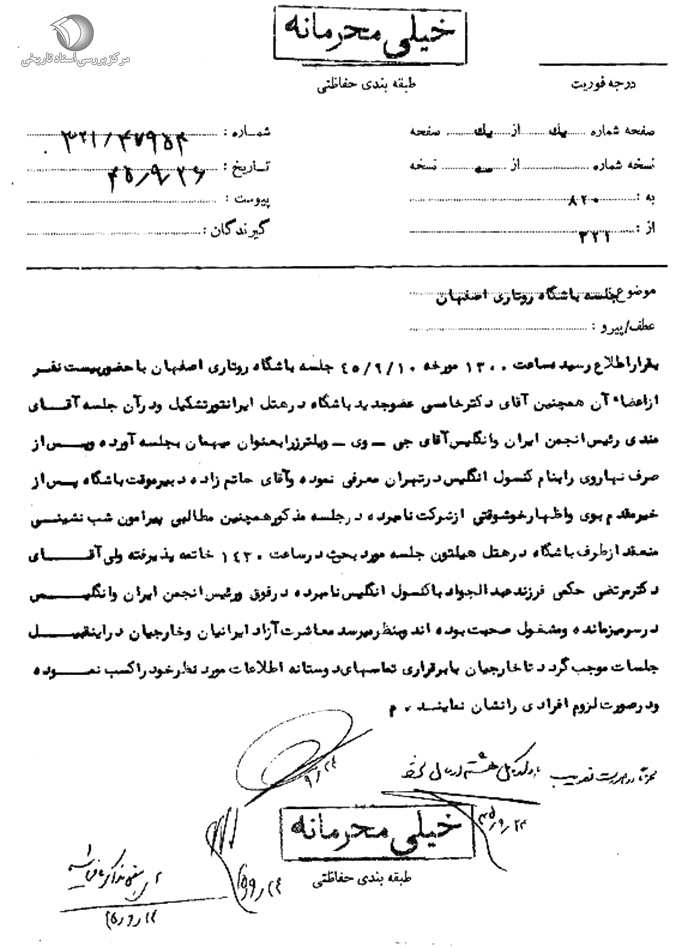 مرکز بررسی اسناد تاریخی
خیلی محرمانه
طبقه بندی حفاظتی
درجه فوریت
صفحه شماره یک از یک صفحه
نسخه شماره از نسخه
به : ۸۲۰
از : ۳۲۱
شماره :
تاریخ : ۴۵/۹/۲۶
پیوست :
گیرندگان :
موضوع : جلسه باشگاه روتاری اصفهان
عطف/پیرو :
بقرار اطلاع رسید بساعت ۱۳۰۰ مورخه ۴۵/۹/۱۰ جلسه باشگاه روتاری اصفهان با حضور بیست نفر
از اعضاء آن همچنین آقای دکتر خامسی عضو جدید باشگاه در هتل ایرانتور تشکیل و در آن جلسه آقای
مندی رئیس انجمن ایران و انگلیس آقای جی - وی - ویلترز را بعنوان میهمان بجلسه آورده و پس از
صرف نهار وی را بنام کنسول انگلیس در تهران معرفی نموده و آقای حاتم زاده دبیر موقت باشگاه پس از
خیر مقدم بوی و اظهار خوشوقتی از شرکت نامبرده در جلسه مذکور همچنین مطالبی پیرامون شب نشینی
منعقد از طرف باشگاه در هتل هیلتون جلسه مورد بحث در ساعت ۱۴۳۰ خاتمه پذیرفته ولی آقای
دکتر مرتضی حکمی فرزند عبدالجواد با کنسول انگلیس نامبرده در فوق و رئیس انجمن ایران و انگلیس
در سر میز مانده و مشغول صحبت بوده اند و بنظر میرسد معاشرت آزاد ایرانیان و خارجیان در اینقبیل
جلسات موجب گردد تا خارجیان با برقراری تماسهای دوستانه اطلاعات مورد نظر خود را کسب نموده
و در صورت لزوم افرادی را نشان نمایند . م
۹/۲۴
۴۵/۹/۲۴
خیلی محرمانه
طبقه بندی حفاظتی